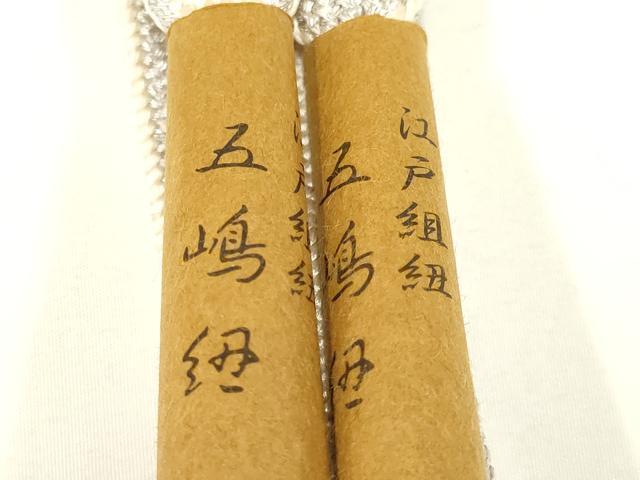 江戸組紐
五嶋紐
江戸組紐
五嶋紐